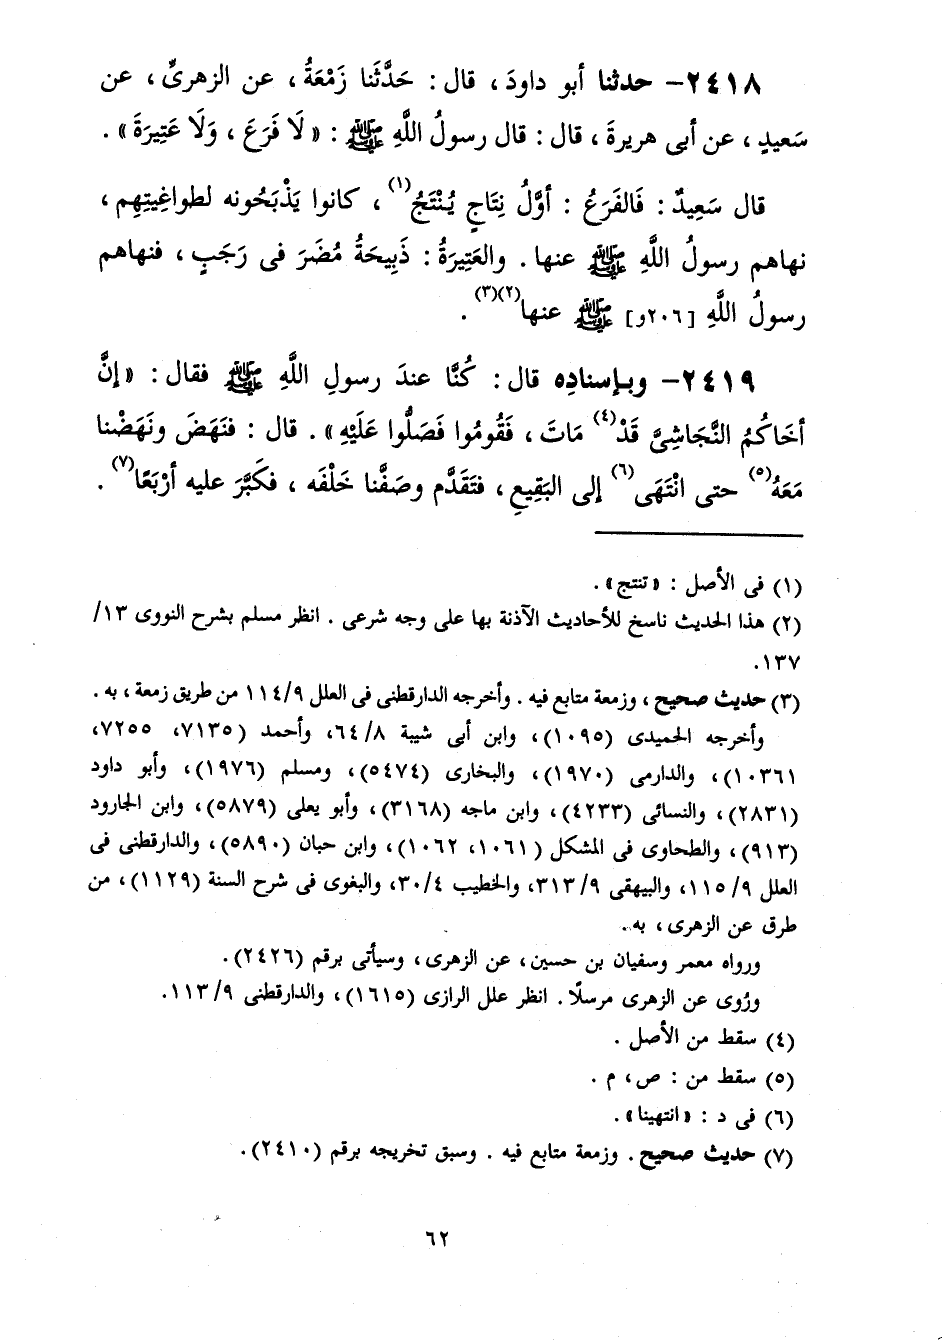 ٢٤١٨- حدثنا أبو داودَ ، قال : حَدَّثَنا زَمْعَةُ ، عن الزهرىِّ ، عن
سَعيدٍ ، عن أبى هريرةَ ، قال : قال رسولُ اللَّهِ ﷺ : « لَا فَرَعَ ، وَلَا عَتِيرَةَ » .
قال سَعِيدٌ : فَالفَرَعُ : أوَّلُ نِتَاجٍ يُنْتَجُ(١) ، كانوا يَذْبَحُونه لطواغِيتِهِم ،
نهاهم رسولُ اللَّهِ ﷺ عنها . والعَتِيرَةُ : ذَبِيحَةُ مُضَرَ فى رَجَبٍ ، فنهاهم
رسولُ اللَّهِ [٢٠٦و] ﷺ عنها(٢)(٣) .
٢٤١٩- وبإسنادِه قال : كُنَّا عندَ رسولِ اللَّهِ ﷺ فقال : « إنَّ
أخَاكُمُ النَّجَاشِىَّ قَدْ(٤) مَاتَ ، فَقُومُوا فَصَلُّوا عَلَيْهِ » . قال : فنَهَضَ ونَهَضْنا
مَعَهُ(٥) حتى انْتَهَى(٦) إلى البَقِيعِ ، فتَقَدَّم وصَفَّنا خَلْفَه ، فكَبَّرَ عليه أرْبَعًا(٧) .
(١) فى الأصل : « تنتج » .
(٢) هذا الحديث ناسخ للأحاديث الآذنة بها على وجه شرعى . انظر مسلم بشرح النووى ١٣/
١٣٧.
(٣) حديث صحيح ، وزمعة متابع فيه . وأخرجه الدارقطنى فى العلل ١١٤/٩ من طريق زمعة ، به .
وأخرجه الحميدى (١٠٩٥)، وابن أبى شيبة ٦٤/٨، وأحمد (٧١٣٥، ٧٢٥٥،
١٠٣٦١)، والدارمى (١٩٧٠)، والبخارى (٥٤٧٤)، ومسلم (١٩٧٦)، وأبو داود
(٢٨٣١)، والنسائى (٤٢٣٣)، وابن ماجه (٣١٦٨)، وأبو يعلى (٥٨٧٩)، وابن الجارود
(٩١٣)، والطحاوى فى المشكل (١٠٦١، ١٠٦٢)، وابن حبان (٥٨٩٠)، والدارقطنى فى
العلل ١١٥/٩، والبيهقى ٣١٣/٩، والخطيب ٣٠/٤، والبغوى فى شرح السنة (١١٢٩)، من
طرق عن الزهرى ، به .
ورواه معمر وسفيان بن حسين، عن الزهرى، وسيأتى برقم (٢٤٢٦).
ورُوى عن الزهرى مرسلًا . انظر علل الرازى (١٦١٥)، والدارقطنى ١١٣/٩.
(٤) سقط من الأصل .
(٥) سقط من : ص ، م .
(٦) فى د : « انتهينا » .
(٧) حديث صحيح . وزمعة متابع فيه . وسبق تخريجه برقم (٢٤١٠).
٦٢